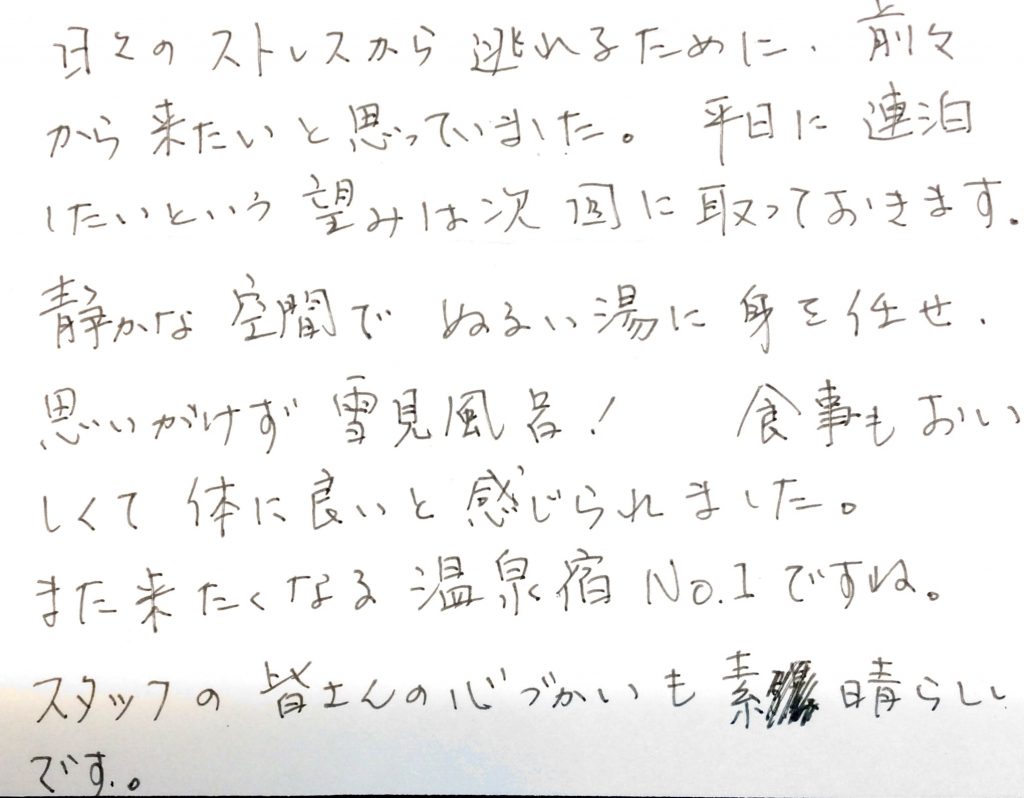 日々のストレスから逃れるために、前々
から来たいと思っていました。平日に連泊
したいという望みは次回に取っておきます。
静かな空間でぬるい湯に身を任せ、
思いがけず雪見風呂！ 食事もおい
しくて体に良いと感じられました。
また来たくなる温泉宿No.1ですね。
スタッフの皆さんの心づかいも素晴らしい
です。